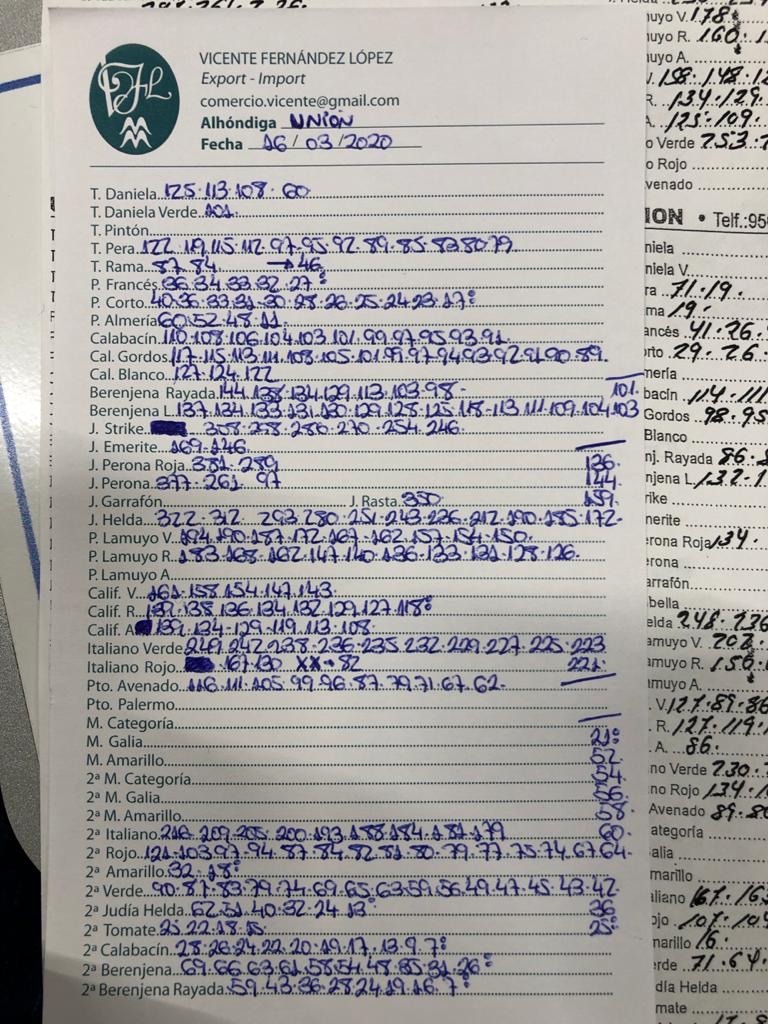 VICENTE FERNÁNDEZ LÓPEZ
Export - Import
comercio.vicente@gmail.com
Alhóndiga UNION
Fecha 16/03/2020
T. Daniela 125.113.108.60
T. Daniela Verde 101.
T. Pintón
T. Pera 122.119.115.112.97.95.92.89.85.82.80.79
T. Rama 87.84 → 46
P. Francés 36.34.33.32.27
P. Corto 40.36.33.31.30.28.26.25.24.23.17
P. Almería 60.52.48.11.
Calabacín 110.108.106.104.103.101.99.97.95.93.91.
Cal. Gordos 117.115.113.111.108.105.101.99.97.94.93.92.91.90.89.
Cal. Blanco 127.124.122
Berenjena Rayada 144.138.134.129.113.103.98. 101.
Berenjena L. 137.134.133.131.130.129.128.125.118.113.111.109.104.103
J. Strike 308.298.286.270.254.246.
J. Emerite 169.146.
J. Perona Roja 381.289 136.
J. Perona 377.261.97 144.
J. Garrafón J. Rasta 350 159.
J. Helda 322.312.293.280.251.243.236.212.190.185.172.
P. Lamuyo V. 194.190.187.172.167.162.157.154.150.
P. Lamuyo R. 183.168.162.147.140.136.133.131.128.126.
P. Lamuyo A.
Calif. V. 161.158.154.147.143.
Calif. R. 138.136.134.132.129.127.118
Calif. A 139.134.129.119.113.108.
Italiano Verde 249.242.238.236.235.232.229.227.225.223
Italiano Rojo 167.130 XX→82 221.
Pto. Avenado 116.111.105.99.96.87.79.71.67.62.
Pto. Palermo
M. Categoría
M. Galia 21
M. Amarillo 52
2ª M. Categoría 54
2ª M. Galia 56
2ª M. Amarillo 58
2ª Italiano 216.209.205.200.193.188.184.181.179 60.
2ª Rojo 121.103.97.94.87.84.82.81.80.79.77.75.74.67.64.
2ª Amarillo 32.18
2ª Verde 90.87.83.79.74.69.65.63.59.56.49.47.45.43.42.
2ª Judía Helda 62.51.40.32.24.13 36
2ª Tomate 25.22.18.15 25
2ª Calabacín 28.26.24.22.20.19.17.13.9.7
2ª Berenjena 69.66.63.61.58.54.48.35.31.26
2ª Berenjena Rayada 59.43.36.28.24.19.16.7
muyo V. 178
muyo R. 160.1
uyo A.
V. 158.148.12
R. 134.129.
A. 125.109.
o Verde 253.
o Rojo
venado
ION • Telf.:95
niela
niela V.
ra 71.19.
ma 19.
ancés 41.26.
rto 29.26.
mería
bacín 114.111
Gordos 98.95
Blanco
nj. Rayada 86.
njena L. 132.1
rike
nerite
erona Roja 134.
erona
arrafón
bella
elda 248.236
amuyo V. 202.
amuyo R. 156.
amuyo A.
V. 127.89.86
R. 127.119.
A. 86.
no Verde 230.
no Rojo 134.
Avenado 89.80
ategoría
alia
marillo
aliano 167.165
ojo 107.104
narillo 16.
erde 71.64.
día Helda
mate